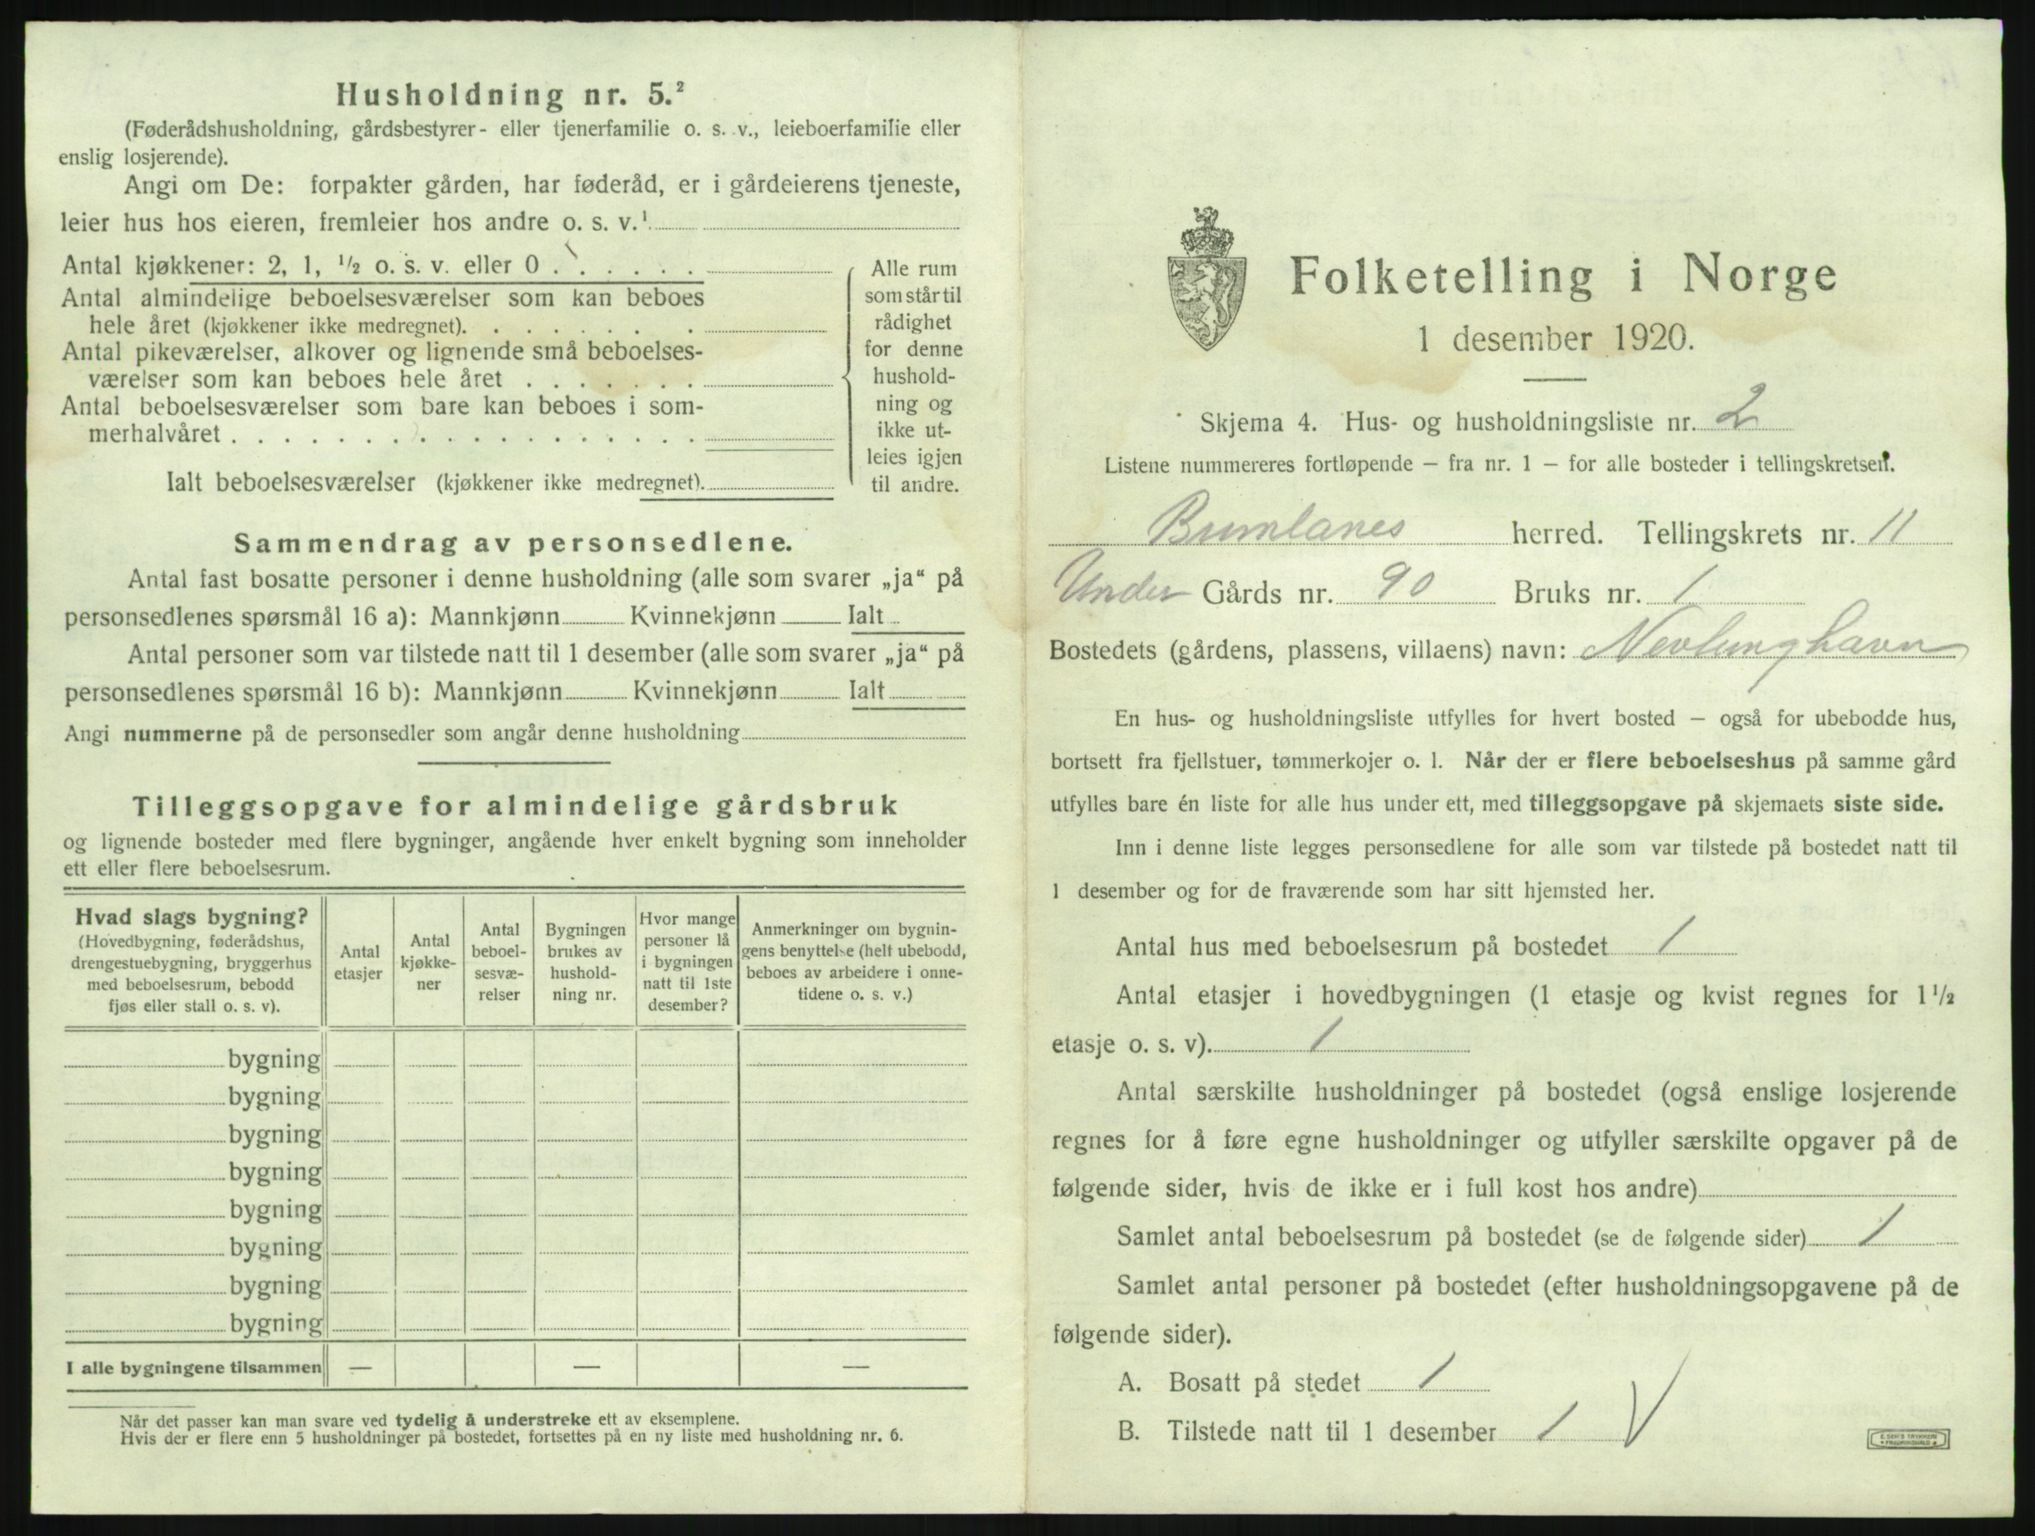 Husholdning nr. 5.²
(Føderådshusholdning, gårdsbestyrer- eller tjenerfamilie o. s. v., leieboerfamilie eller
enslig losjerende).
Angi om De: forpakter gården, har føderåd, er i gårdeierens tjeneste,
leier hus hos eieren, fremleier hos andre o. s. v.¹
Antal kjøkkener: 2, 1, ½ o. s. v. eller 0
Antal almindelige beboelsesværelser som kan beboes
hele året (kjøkkener ikke medregnet).
Antal pikeværelser, alkover og lignende små beboelses-
værelser som kan beboes hele året
Antal beboelsesværelser som bare kan beboes i som-
merhalvåret
Ialt beboelsesværelser (kjøkkener ikke medregnet).
Alle rum
som står til
rådighet
for denne
hushold-
ning og
ikke ut-
leies igjen
til andre.
Sammendrag av personsedlene.
Antal fast bosatte personer i denne husholdning (alle som svarer „ja“ på
personsedlenes spørsmål 16 a): Mannkjønn Kvinnekjønn Ialt
Antal personer som var tilstede natt til 1 desember (alle som svarer „ja“ på
personsedlenes spørsmål 16 b): Mannkjønn Kvinnekjønn Ialt
Angi nummerne på de personsedler som angår denne husholdning
Tilleggsopgave for almindelige gårdsbruk
og lignende bosteder med flere bygninger, angående hver enkelt bygning som inneholder
ett eller flere beboelsesrum.
Hvad slags bygning?
(Hovedbygning, føderådshus,
drengestuebygning, bryggerhus
med beboelsesrum, bebodd
fjøs eller stall o. s. v).
Antal
etasjer
Antal
kjøkke-
ner
Antal
beboel-
sesvæ-
relser
Bygningen
brukes av
hushold-
ning nr.
Hvor mange
personer lå
i bygningen
natt til 1ste
desember?
Anmerkninger om bygnin-
gens benyttelse (helt ubebodd,
beboes av arbeidere i onne-
tidene o. s. v.)
bygning
bygning
bygning
bygning
bygning
bygning
bygning
bygning
I alle bygningene tilsammen — — —
Når det passer kan man svare ved tydelig å understreke ett av eksemplene.
Hvis der er flere enn 5 husholdninger på bostedet, fortsettes på en ny liste med husholdning nr. 6.
Folketelling i Norge
1 desember 1920.
Skjema 4. Hus- og husholdningsliste nr. 2
Listene nummereres fortløpende – fra nr. 1 – for alle bosteder i tellingskretsen.
Brunlanes herred. Tellingskrets nr. 11
Under Gårds nr. 90 Bruks nr. 1
Bostedets (gårdens, plassens, villaens) navn: Nevlunghavn
En hus- og husholdningsliste utfylles for hvert bosted – også for ubebodde hus,
bortsett fra fjellstuer, tømmerkojer o. l. Når der er flere beboelseshus på samme gård
utfylles bare én liste for alle hus under ett, med tilleggsopgave på skjemaets siste side.
Inn i denne liste legges personsedlene for alle som var tilstede på bostedet natt til
1 desember og for de fraværende som har sitt hjemsted her.
Antal hus med beboelsesrum på bostedet 1
Antal etasjer i hovedbygningen (1 etasje og kvist regnes for 1½
etasje o. s. v). 1
Antal særskilte husholdninger på bostedet (også enslige losjerende
regnes for å føre egne husholdninger og utfyller særskilte opgaver på de
følgende sider, hvis de ikke er i full kost hos andre)
Samlet antal beboelsesrum på bostedet (se de følgende sider) 1
Samlet antal personer på bostedet (efter husholdningsopgavene på de
følgende sider).
A. Bosatt på stedet 1
B. Tilstede natt til 1 desember 1 V